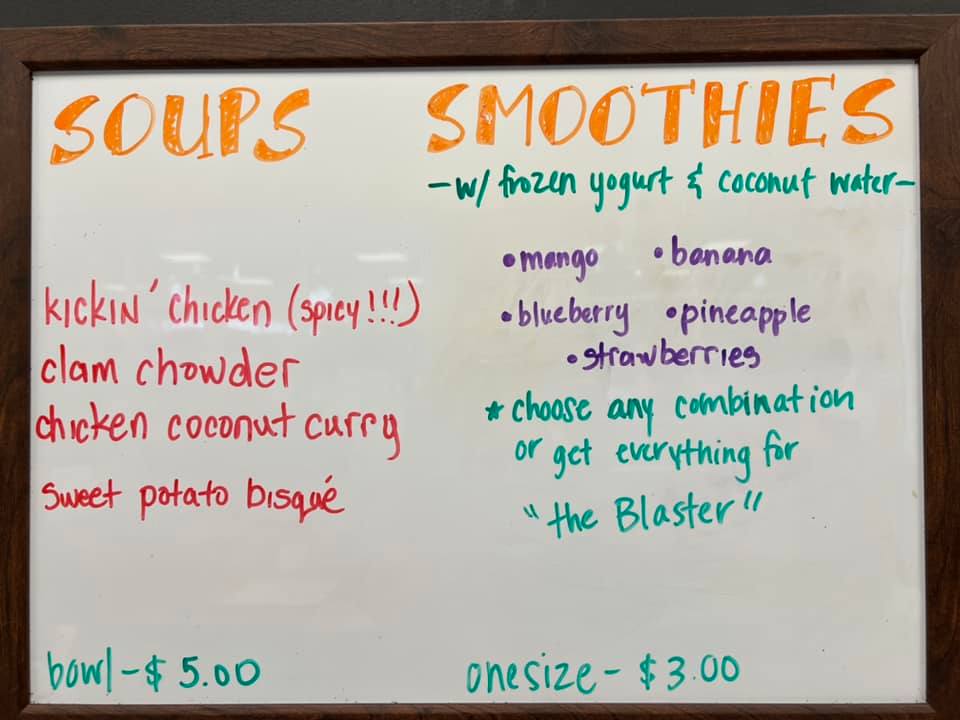 SOUPS
kickin' chicken (spicy!!!)
clam chowder
chicken coconut curry
sweet potato bisqué
bowl - $ 5.00
SMOOTHIES
- w/ frozen yogurt & coconut water -
• mango • banana
• blueberry • pineapple
• strawberries
* choose any combination
or get everything for
"the Blaster"
one size - $ 3.00